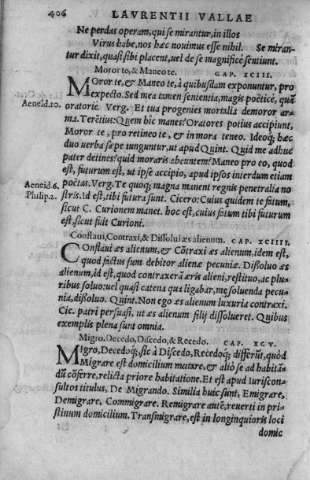 406 LAVRENTII VALLAE
Ne perdas operam, qui se mirantur, in illos
Virus habe, nos hæc nouimus esse nihil. Se miran-
tur dixit, quasi sibi placent, uel de se magnificè sentiunt.
Moror te, & Maneo te. CAP. XCIII.
MOror te, & Maneo te, à quibusdam exponuntur, pro
expecto. Sed mea tamen sententia, magis poëticè, quàm
Aeneid.10. oratoriè. Verg. Et tua progenies mortalia demoror ar-
ma. Terētius: Quem hîc manes? Oratores potius accipiunt,
Moror te, pro retineo te, & in mora teneo. Ideoq́; hæc
duo uerba sæpe iunguntur, ut apud Quint. Quid me adhuc
pater detines? quid moraris abeuntem? Maneo pro eo, quod
est, futurum est, ut ipse accipio, apud ipsos interdum etiam
Aeneid.6. poëtas. Verg. Te quoq; magna manent regnis penetralia no
Philip.2. stris. id est, tibi futura sunt. Cicero: Cuius quidem te fatum,
sicut C. Curionem manet. hoc est, cuius fatum tibi futurum
est, sicut fuit Curioni.
Conflaui, Contraxi, & Dissolui æs alienum. CAP. XCIIII.
COnflaui æs alienum, & Cōtraxi æs alienum, idem est,
quod factus sum debitor alienæ pecuniæ. Dissoluo æs
alienum, id est, quod contraxerā æris alieni, restituo, ac plu-
ribus soluo: uel quasi catena qua ligabar, me soluenda pecu-
nia, dissoluo. Quint. Non ego æs alienum luxuria contraxi.
Cic. patri persuasi, ut æs alienum filij dissolueret. Quibus
exemplis plena sunt omnia.
Migro, Decedo, Discedo, & Recedo. CAP. XCV.
MIgro, Decedoq́;, sic à Discedo, Recedoq́; differūt, quòd
Migrare est domicilium mutare, & aliò se ad habitā-
dū cōferre, relicta priore habitatione. Et est apud Iuriscon-
sultos titulus, De Migrando. Similia huic sunt, Emigrare,
Demigrare, Commigrare. Remigrare autē, reuerti in pri-
stinum domicilium. Transmigrare, est in longinquioris loci
domic